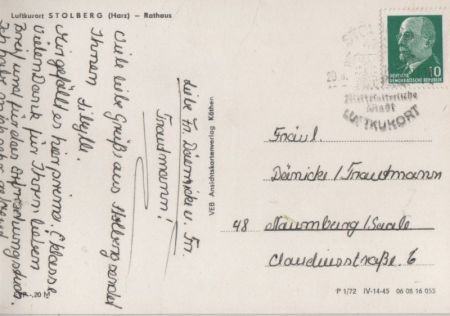 Luftkurort STOLBERG (Harz) — Rathaus
Liebe Fr. Däinicke u. Frl.
Trautmann!
Viele liebe Grüße aus Stolberg sendet
Ihnen Sibylle.
Mir gefällt es hier prima.
Vielen Dank für Ihren lieben
Brief und für das
Ich habe mich sehr gefreut
VEB Ansichtskartenverlag Köthen
DEUTSCHE
DEMOKRATISCHE REPUBLIK
10
Mittelalterliche
Stadt
LUFTKURORT
Fräul.
Däinicke/Trautmann
48 Naumburg/Saale
Claudiusstraße 6
P 1/72 IV-14-45 06 08 16 055